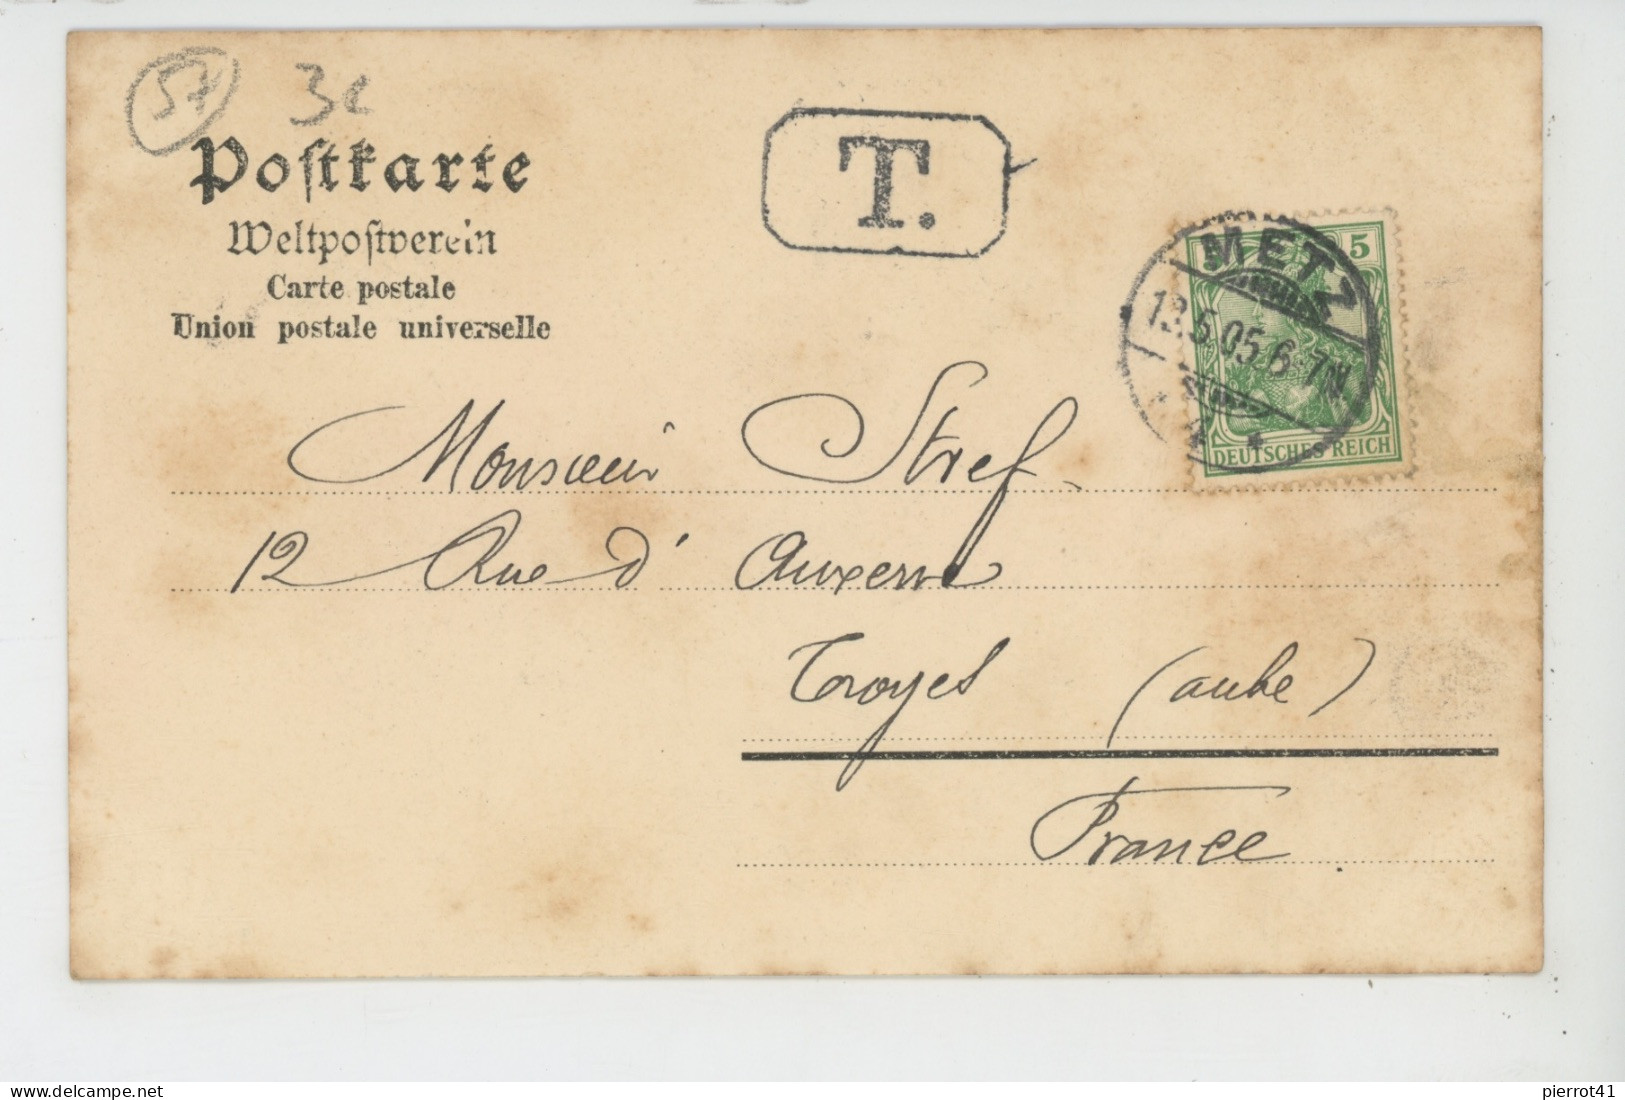 57 3e
Postkarte
Weltpostverein
Carte postale
Union postale universelle
T.
5
METZ
13.5.05.6-7N
DEUTSCHES REICH
Monsieur Stref
12 Rue d' Auxerre
Troyes (aube)
France
delcampe.net
pierrot41